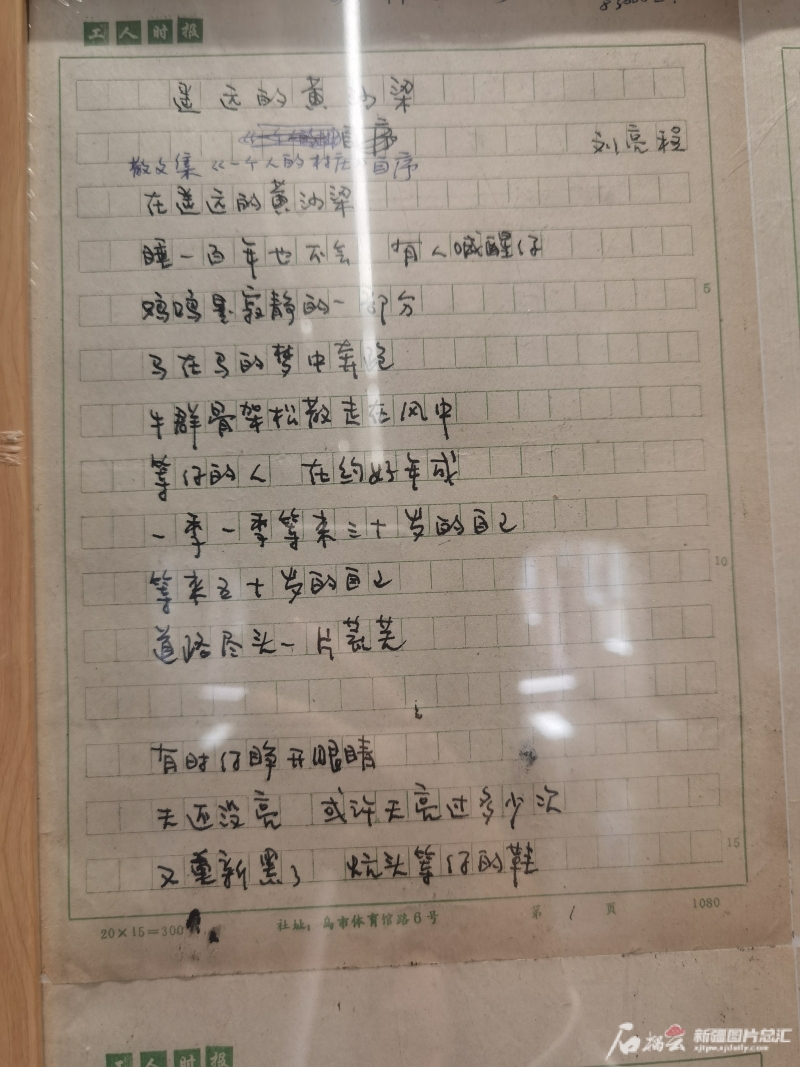 工人时报
遥远的黄沙梁
自序
刘亮程
散文集《一个人的村庄》自序
在遥远的黄沙梁
睡一百年也不会 有人喊醒你
鸡鸣是寂静的一部分
马在马的梦中奔跑
牛群骨架松散走在风中
等你的人 在约好年成
一季一季等来三十岁的自己
等来五十岁的自己
道路尽头一片荒芜
5
10
有时你睁开眼睛
天还没亮 或许天亮过多少次
又重新黑了 炕头等你的鞋
15
20×15=300
社址：乌市体育馆路6号
第 1 页
1080
工人时报
石榴云
新疆图片总汇
xjtpw.xjdaily.com